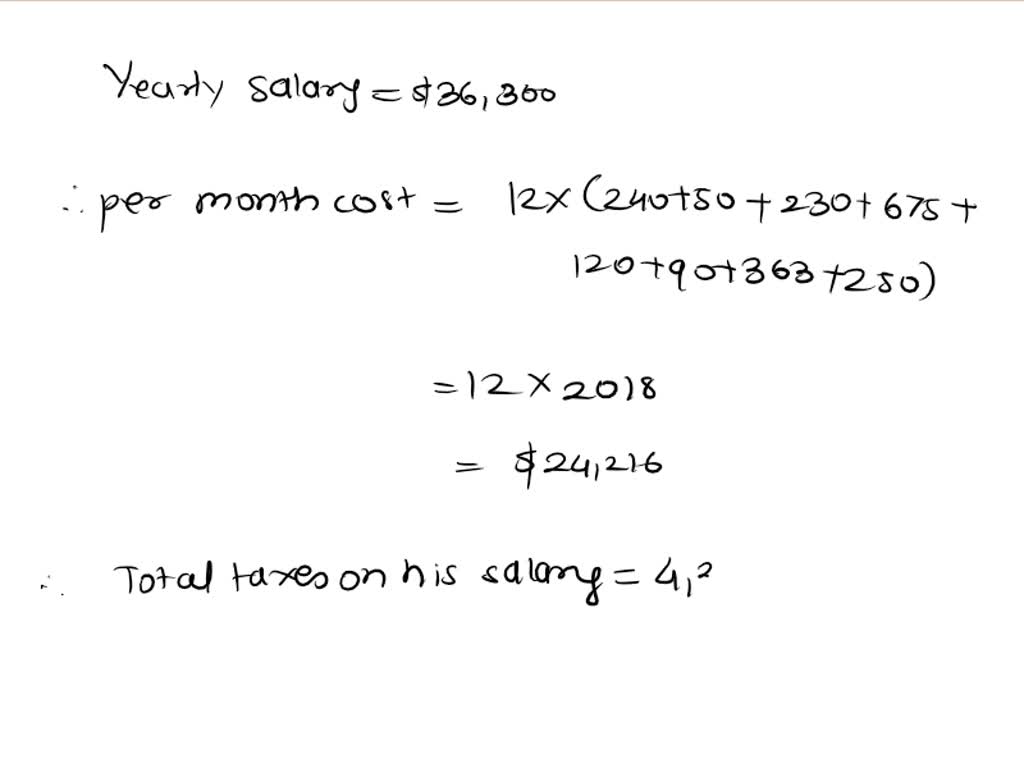 Yearly salary = $36,300
∴ per month cost = 12x (240+50+230+675+
120+90+363+250)
= 12 x 2018
= $24,216
∴ Total taxes on his salary = 4,2